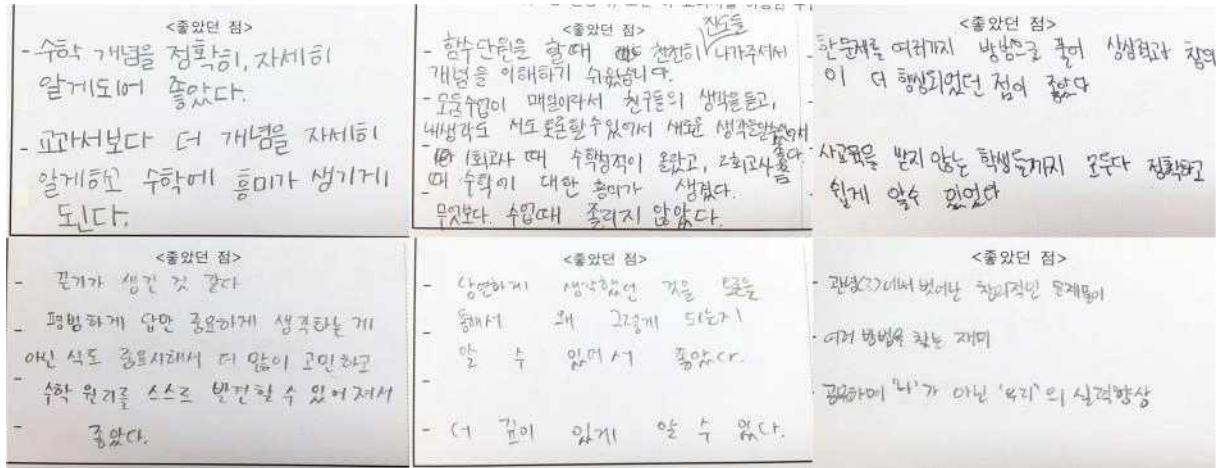 <좋았던 점>
- 수학 개념을 정확히, 자세히
알게되어 좋았다.
- 교과서보다 더 개념을 자세히
알게하고 수학에 흥미가 생기게
된다.
<좋았던 점>
진도를
- 함수단원을 할때 천천히 나가주셔서
개념을 이해하기 쉬웠습니다.
- 모둠수업이 매일이라서 친구들의 생각을 듣고,
내생각도 서로 토론할 수 있어서 새로운 생각을
1회고사 때 수학성적이 올랐고, 2회고사
때 수학에 대한 흥미가 생겼다.
무엇보다. 수업때 졸리지 않았다.
<좋았던 점>
- 한문제를 여러가지 방법으로 풀어 상상력과 창의
이 더 향상되었던 점이 좋았다
- 사교육을 받지 않는 학생들까지 모두다 정확하고
쉽게 알수 있었다
<좋았던 점>
- 끈기가 생긴 것 같다
- 평범하게 답만 중요하게 생각하는 게
아닌 식도 중요시해서 더 많이 고민하고
- 수학 원리를 스스로 발견할 수 있어져서
- 좋았다.
<좋았던 점>
- 당연하게 생각했던 것을 토론을
통해서 왜 그렇게 되는지
- 알 수 있어서 좋았다.
-
- 더 깊이 있게 알 수 있다.
<좋았던 점>
- 관념(?)에서 벗어난 창의적인 문제풀이
- 여러 방법을 찾는 재미
- 공유하며 '나'가 아닌 '우리'의 실력향상